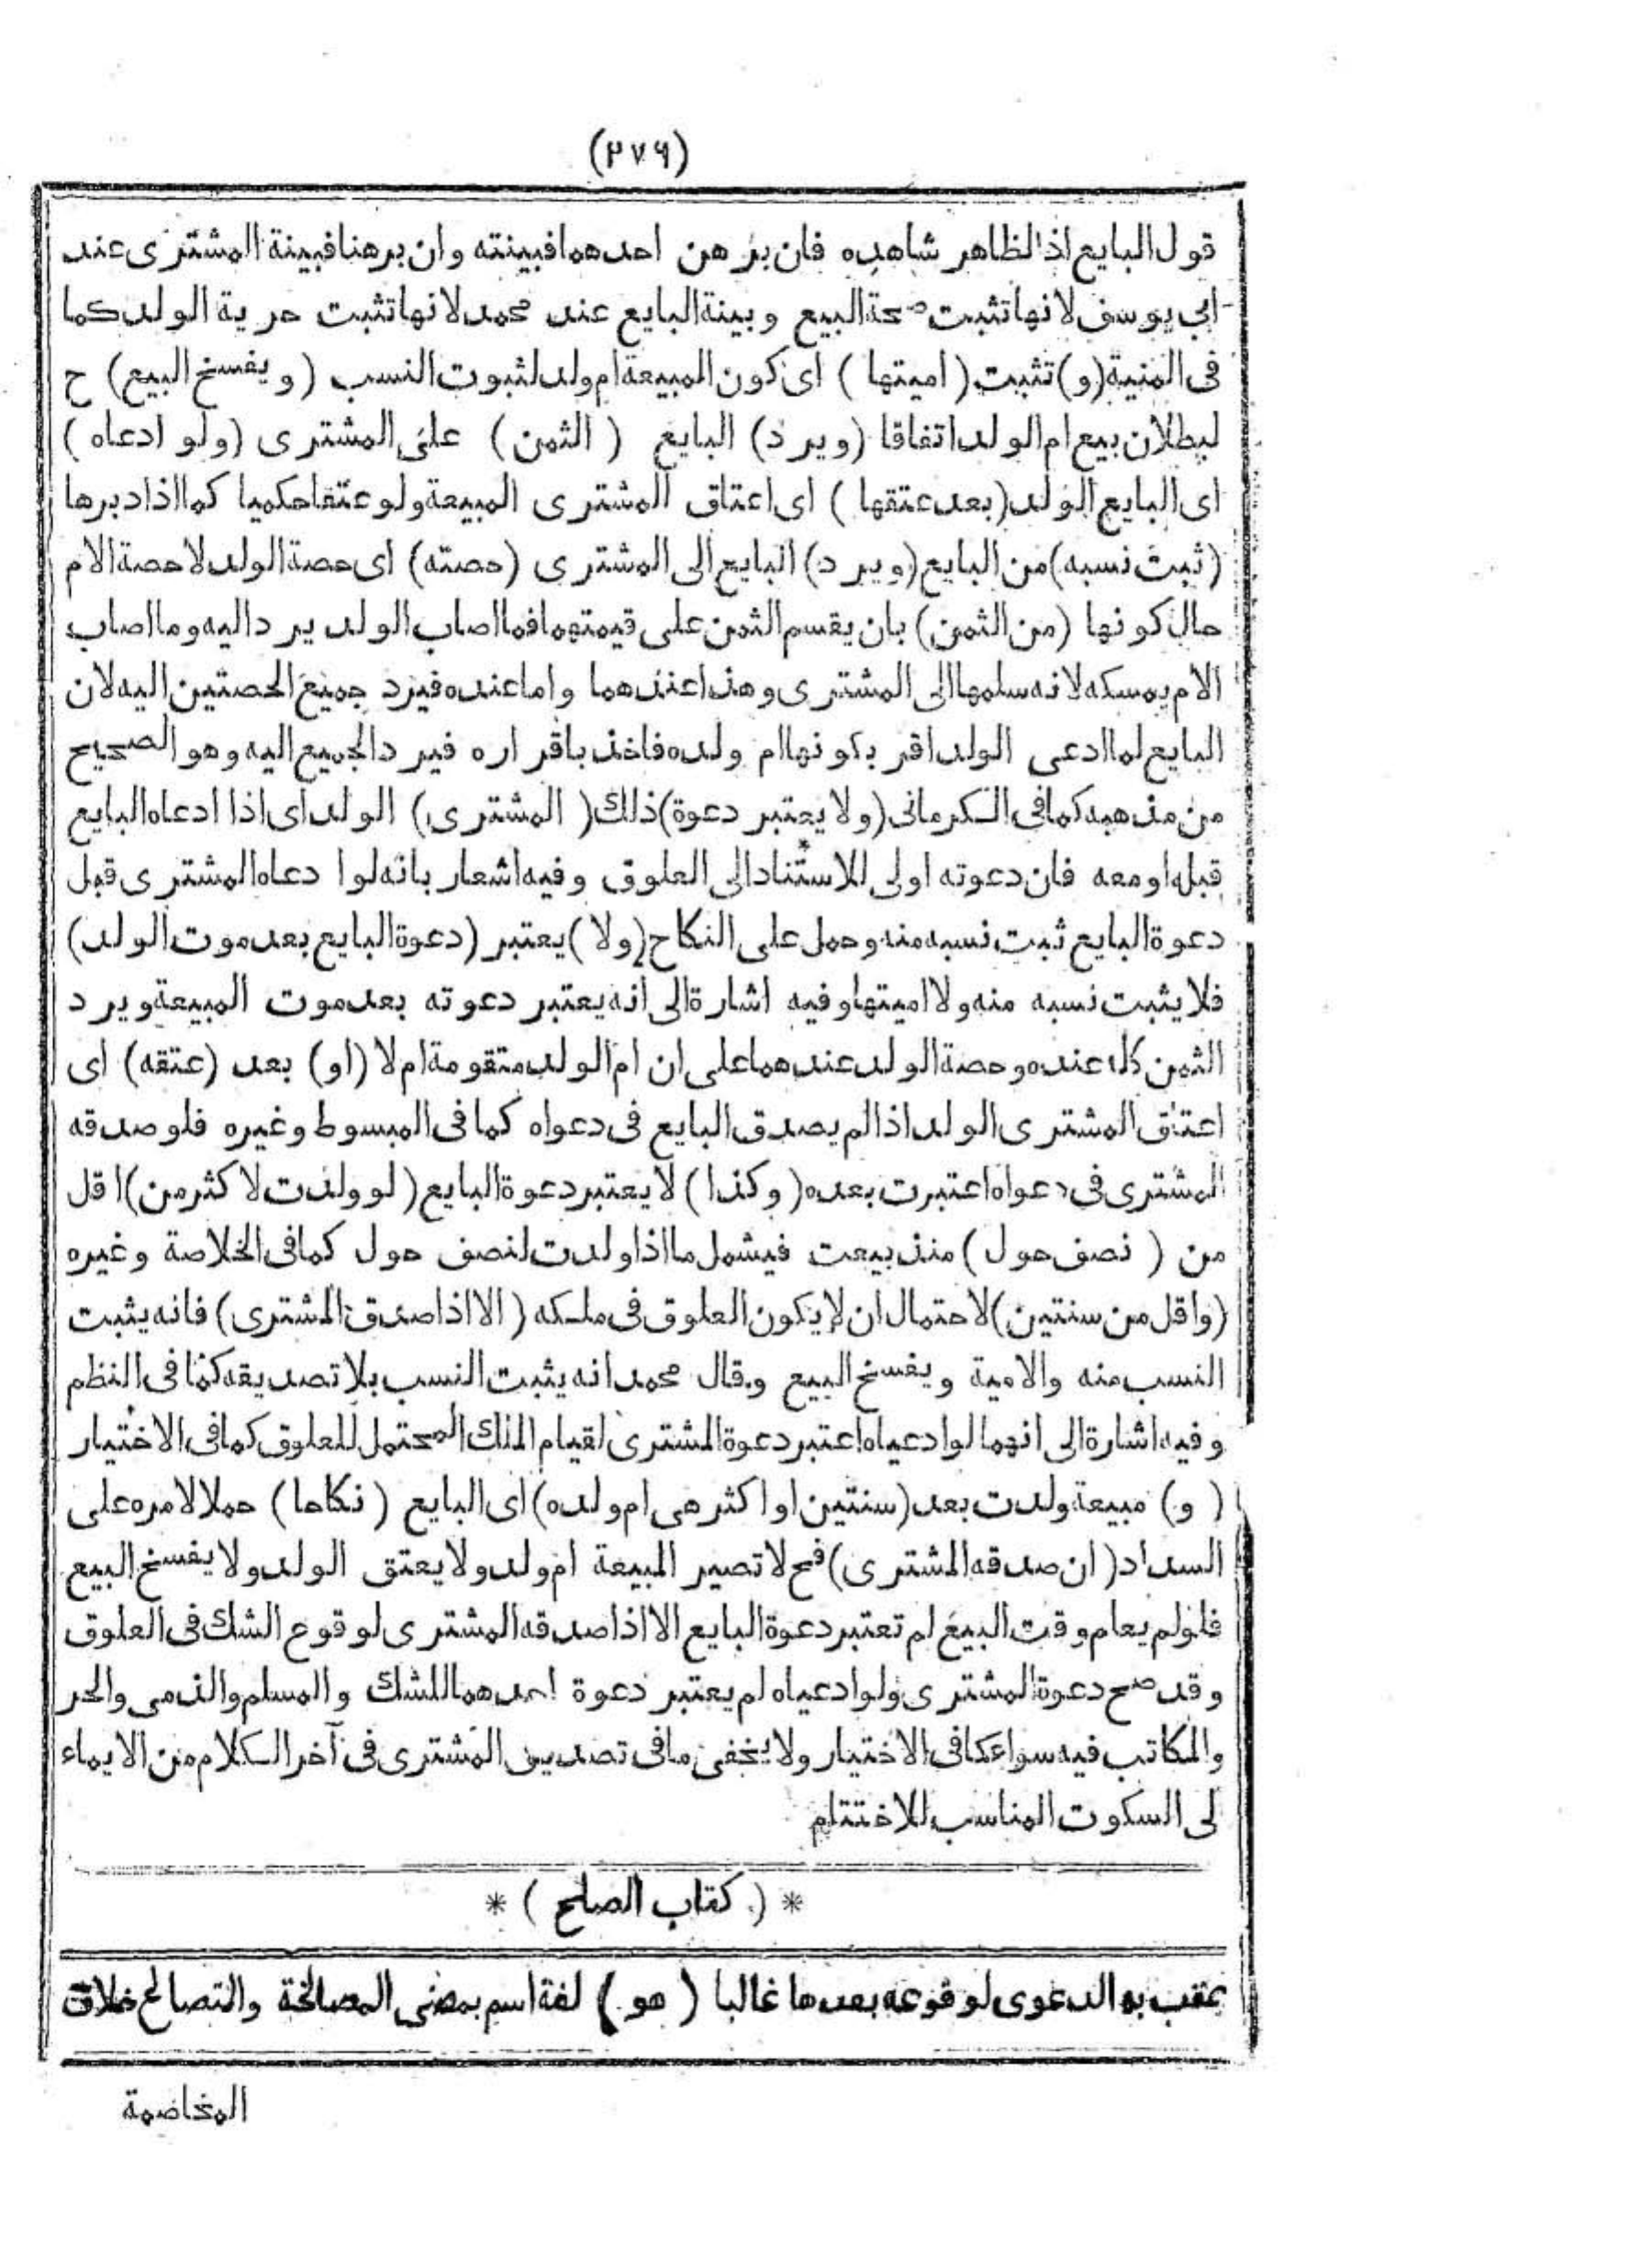 (٢٧٦)
قول البايع اذ الظاهر شاهده فان برهن احدهما فبينته وان برهنا فبينة المشترى عند
ابى يوسف لانها تثبت صحة البيع وبينة البايع عند محمد لانها تثبت حرية الولد كما
فى المنية (و) تثبت (اميتها) اى كون المبيعة ام ولد لثبوت النسب (ويفسخ البيع) ح
لبطلان بيع ام الولد اتفاقا (ويرد) البايع (الثمن) على المشترى (ولو ادعاه)
اى البايع الولد (بعد عتقها) اى اعتاق المشترى المبيعة ولو عتقا حكميا كما اذا دبرها
(ثبت نسبه) من البايع (ويرد) البايع الى المشترى (حصته) اى حصة الولد لا حصة الام
حال كونها (من الثمن) بان يقسم الثمن على قيمتهما فما اصاب الولد يرد اليه وما اصاب
الام يمسكه لانه سلمها الى المشترى وهذا عندهما واما عنده فيرد جميع الحصتين اليه لان
البايع لما ادعى الولد اقر بكونها ام ولده فاخذ باقراره فيرد الجميع اليه وهو الصحيح
من مذهبه كما فى الكرمانى (ولا يعتبر دعوة) ذلك (المشترى) الولد اى اذا ادعاه البايع
قبله او معه فان دعوته اولى للاستناد الى العلوق وفيه اشعار بانه لو ا دعاه المشترى قبل
دعوة البايع ثبت نسبه منه وحمل على النكاح (ولا) يعتبر (دعوة البايع بعد موت الولد)
فلا يثبت نسبه منه ولا اميتها وفيه اشارة الى انه يعتبر دعوته بعد موت المبيعة ويرد
الثمن كله عنده وحصة الولد عندهما على ان ام الولد متقومة ام لا (او) بعد (عتقه) اى
اعتاق المشترى الولد اذا لم يصدق البايع فى دعواه كما فى المبسوط وغيره فلو صدقه
المشترى فى دعواه اعتبرت بعده (وكذا) لا يعتبر دعوة البايع (لو ولدت لاكثر من) اقل
من (نصف حول) منذ بيعت فيشمل ما اذا ولدت لنصف حول كما فى الخلاصة وغيره
(واقل من سنتين) لاحتمال ان لا يكون العلوق فى ملكه (الا اذا صدق المشترى) فانه يثبت
النسب منه والامية ويفسخ البيع وقال محمد انه يثبت النسب بلا تصديقه كما فى النظم
وفيه اشارة الى انهما لو ادعياه اعتبر دعوة المشترى لقيام الملك المحتمل للعلوق كما فى الاختيار
(و) مبيعة ولدت بعد (سنتين او اكثر هى ام ولده) اى البايع (نكاحا) حملا لامره على
السداد (ان صدقه المشترى) فح لا تصير المبيعة ام ولد ولا يعتق الولد ولا يفسخ البيع
فلو لم يعلم وقت البيع لم تعتبر دعوة البايع الا اذا صدقه المشترى لوقوع الشك فى العلوق
وقد صح دعوة المشترى ولو ادعياه لم يعتبر دعوة احدهما للشك والمسلم والذمى والحر
والمكاتب فيه سواء كما فى الاختيار ولا يخفى ما فى تصديق المشترى فى آخر الكلام من الايماء
لى السكوت المناسب للاختتام
* (كتاب الصلح) *
عقب به الدعوى لوقوعه بعدها غالبا (هو) لغة اسم بمعنى المصالحة والتصالح خلاف
المخاصمة